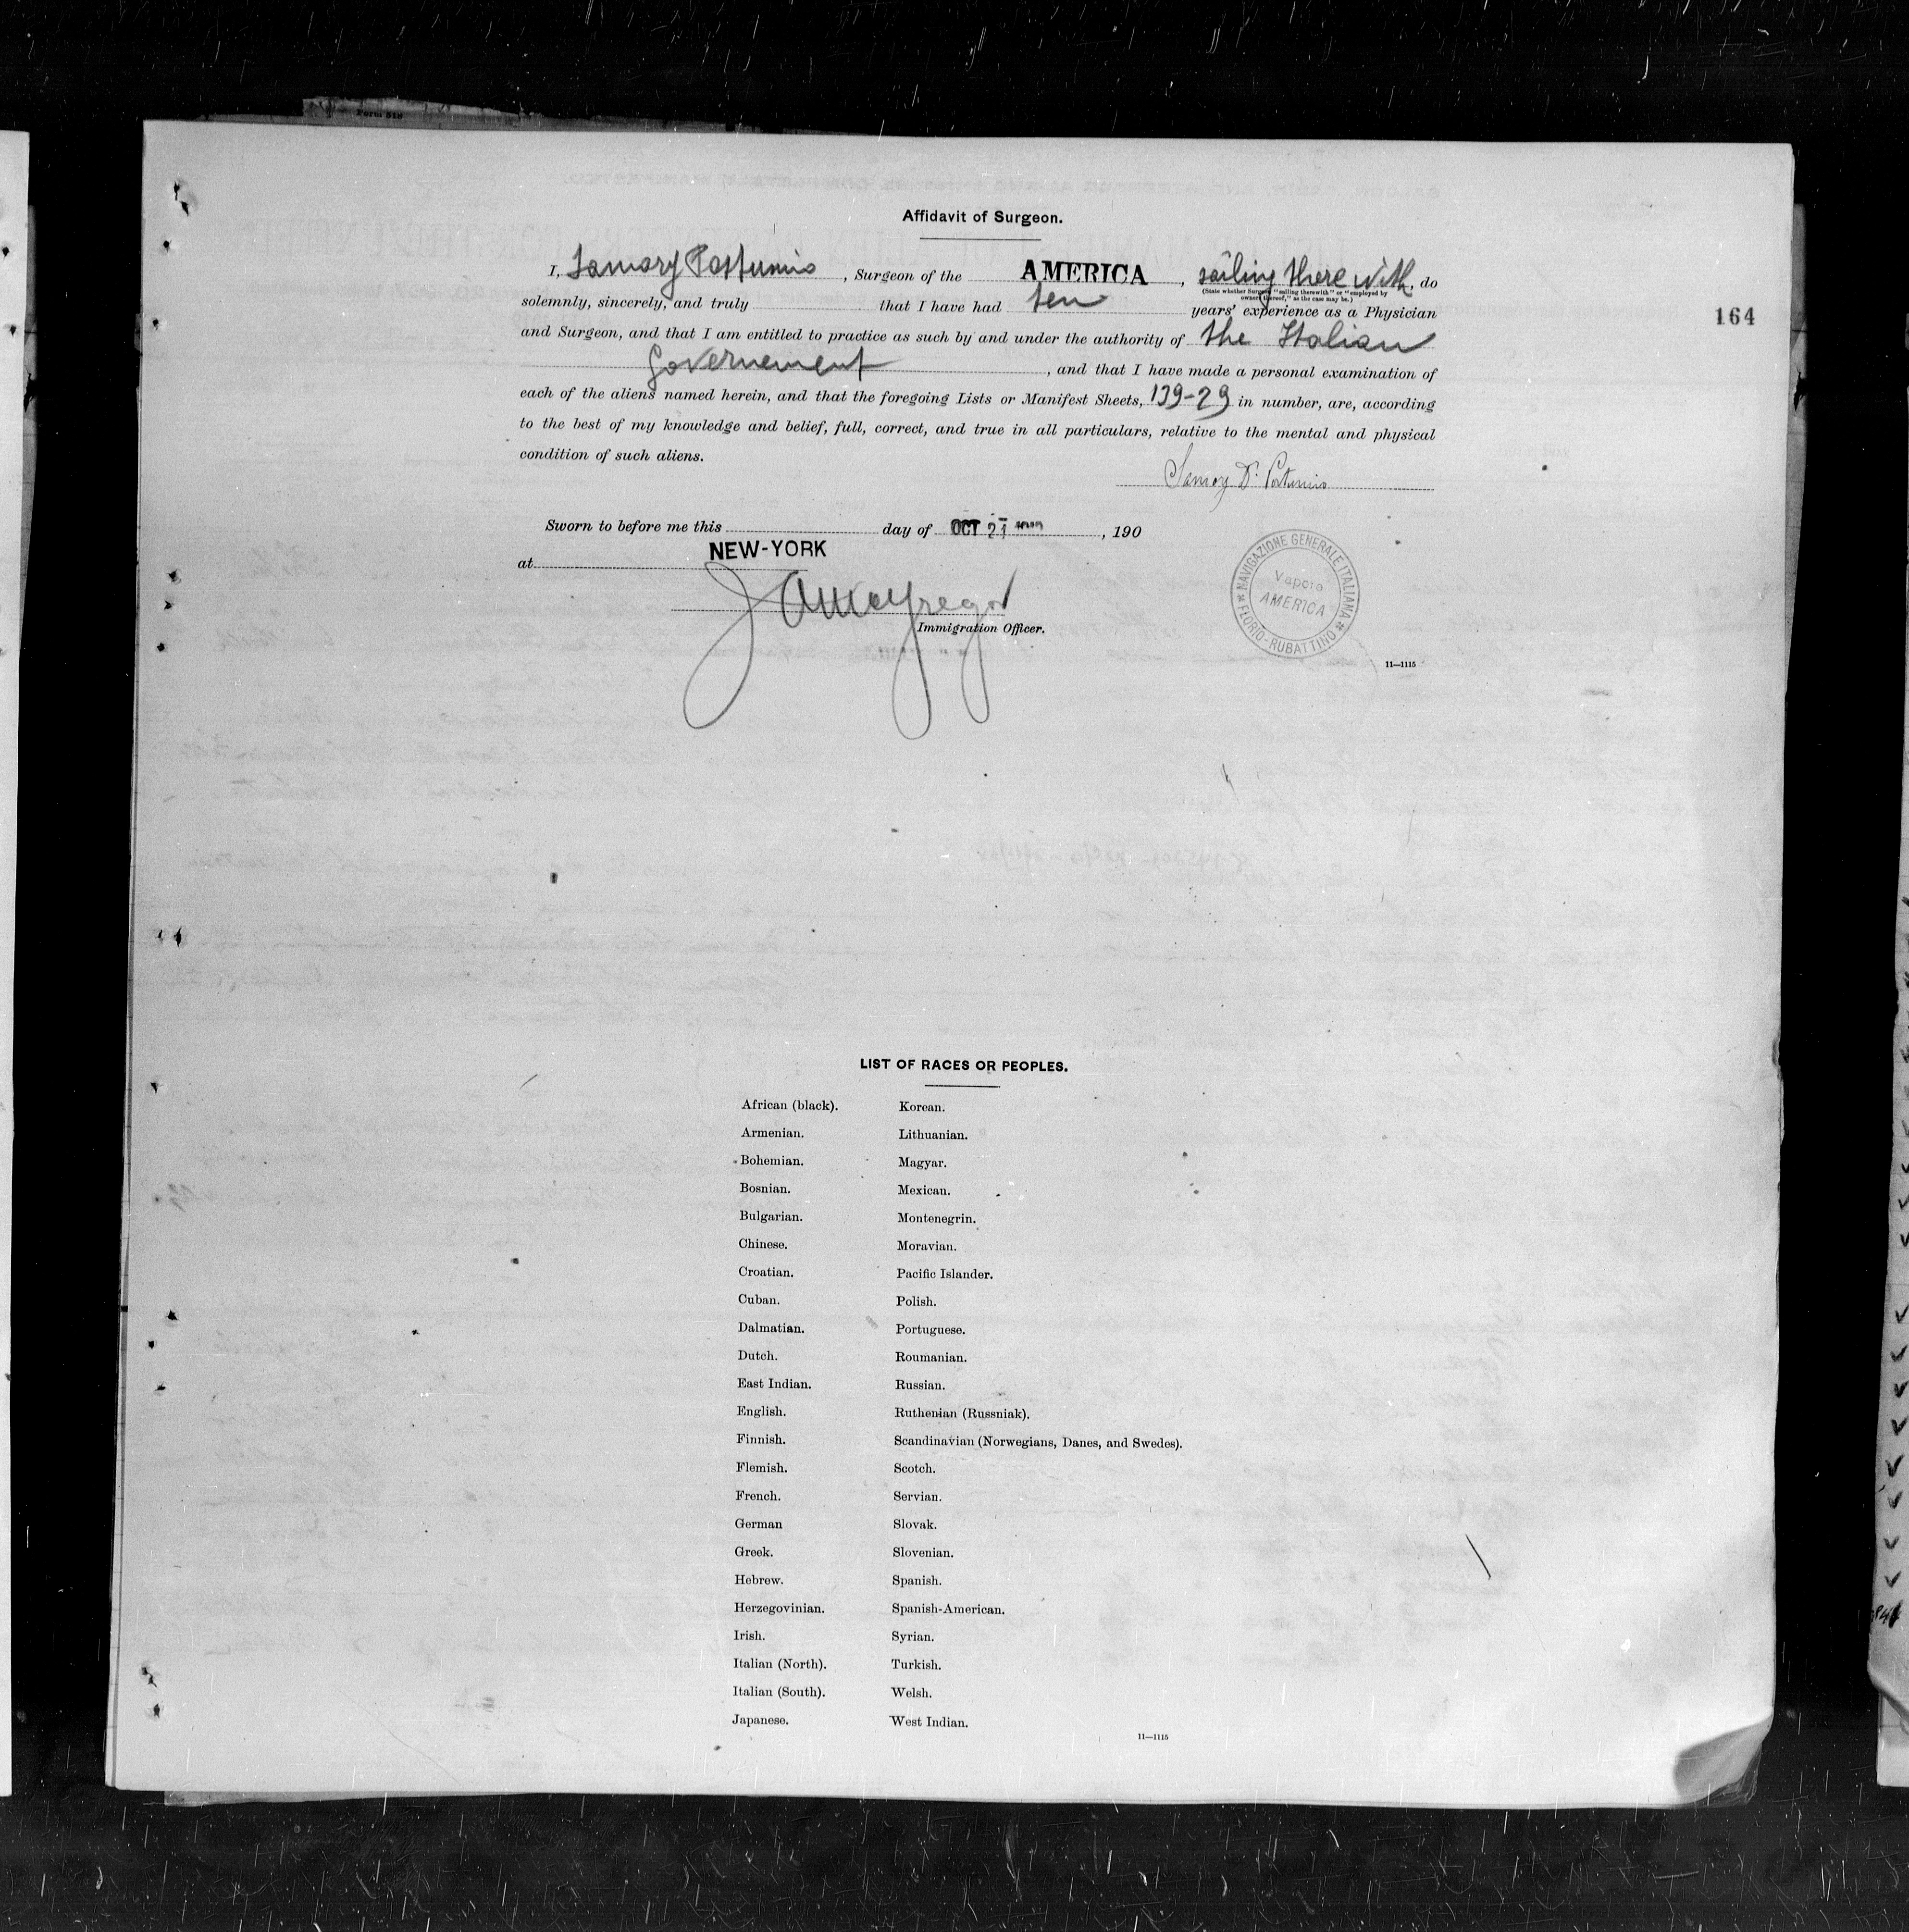 Form 518
Affidavit of Surgeon.
I, Samory Postumio, Surgeon of the AMERICA, sailing there with, do
(State whether Surgeon "sailing therewith" or "employed by
owners thereof," as the case may be.)
solemnly, sincerely, and truly that I have had ten years' experience as a Physician
164
and Surgeon, and that I am entitled to practice as such by and under the authority of the Italian
Governement, and that I have made a personal examination of
each of the aliens named herein, and that the foregoing Lists or Manifest Sheets, 139-29 in number, are, according
to the best of my knowledge and belief, full, correct, and true in all particulars, relative to the mental and physical
condition of such aliens.
Samory Dr. Postumio
Sworn to before me this day of OCT 21, 190
at NEW-YORK
Immigration Officer.
NAVIGAZIONE GENERALE ITALIANA
Vapore
AMERICA
FLORIO-RUBATTINO
11—1115
LIST OF RACES OR PEOPLES.
African (black). Korean.
Armenian. Lithuanian.
Bohemian. Magyar.
Bosnian. Mexican.
Bulgarian. Montenegrin.
Chinese. Moravian.
Croatian. Pacific Islander.
Cuban. Polish.
Dalmatian. Portuguese.
Dutch. Roumanian.
East Indian. Russian.
English. Ruthenian (Russniak).
Finnish. Scandinavian (Norwegians, Danes, and Swedes).
Flemish. Scotch.
French. Servian.
German Slovak.
Greek. Slovenian.
Hebrew. Spanish.
Herzegovinian. Spanish-American.
Irish. Syrian.
Italian (North). Turkish.
Italian (South). Welsh.
Japanese. West Indian.
11—1115